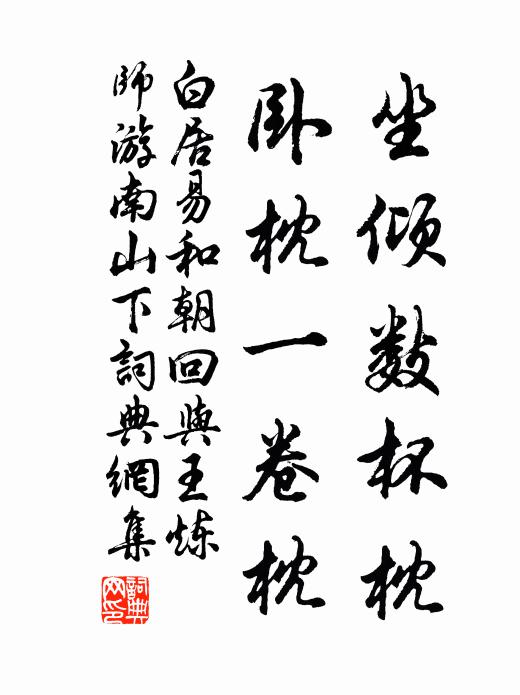 坐倾数杯枕
卧枕一卷枕
白居易和朝回與王炼
師游南山下詞典網集
詞典网印